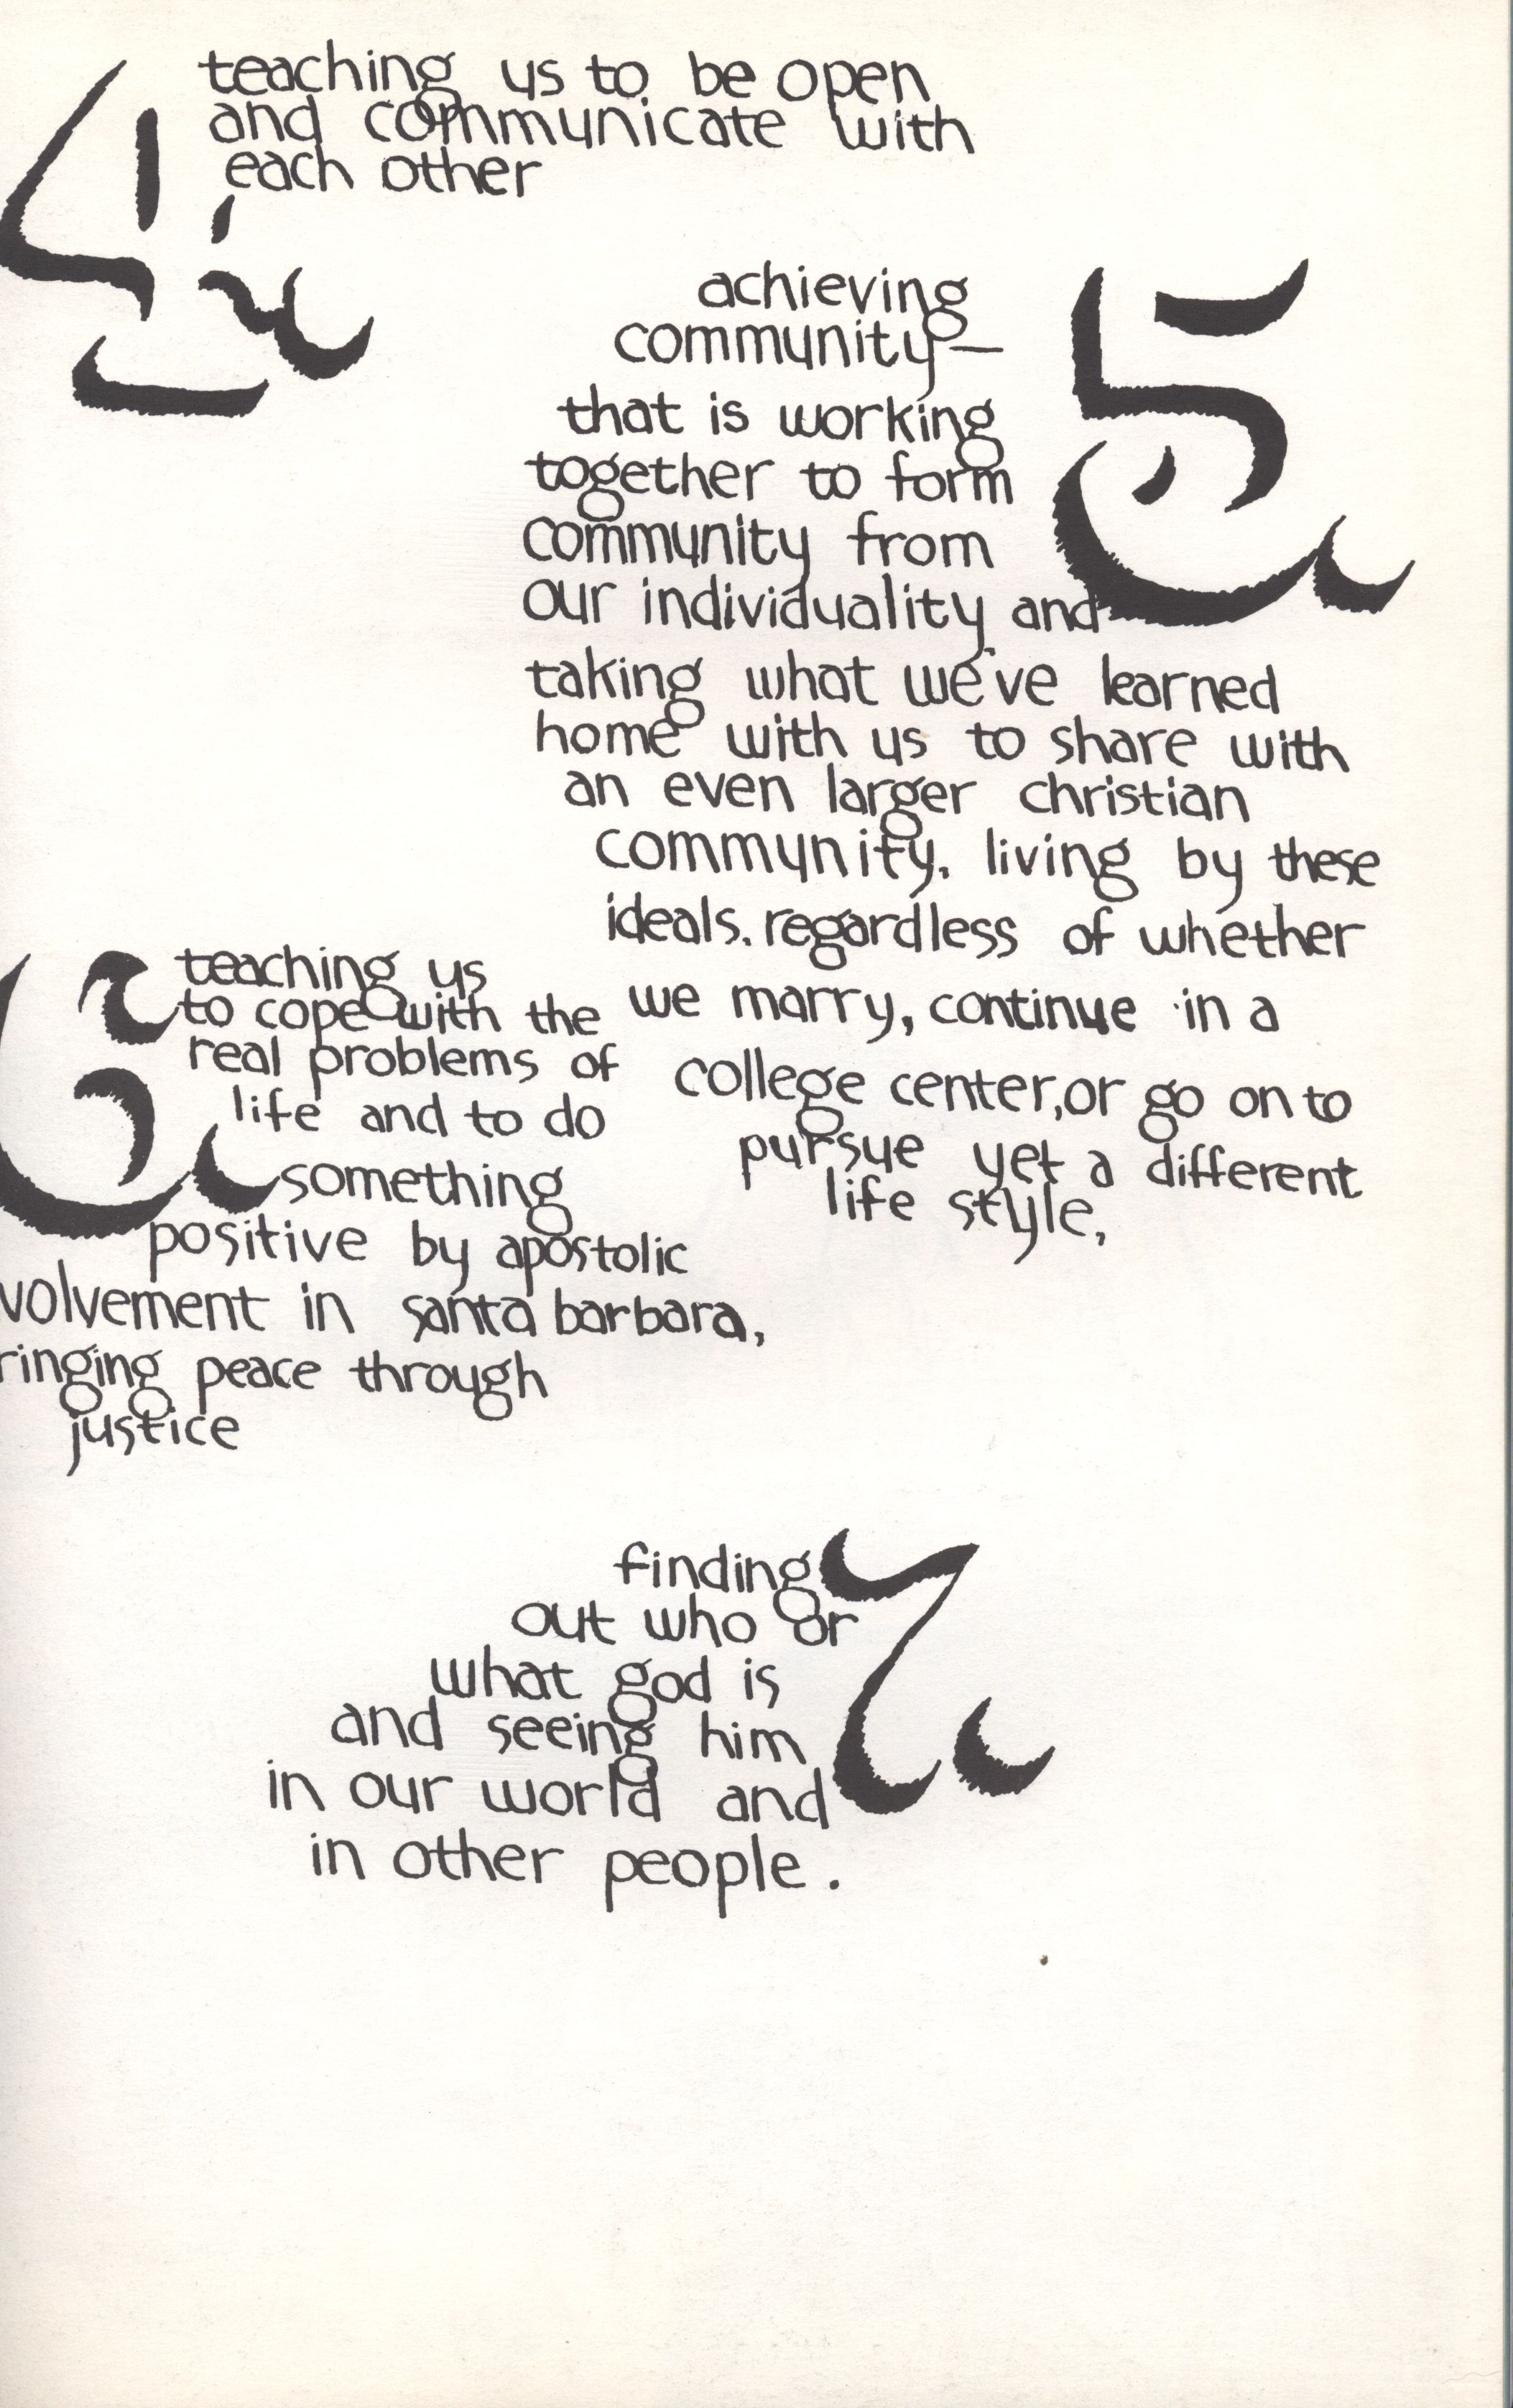 4.
teaching us to be open
and communicate with
each other
5.
achieving
community —
that is working
together to form
community from
our individuality and
taking what we've learned
home with us to share with
an even larger christian
community. living by these
ideals. regardless of whether
we marry, continue in a
college center, or go on to
pursue yet a different
life style,
6.
teaching us
to cope with the
real problems of
life and to do
something
positive by apostolic
volvement in santa barbara,
ringing peace through
justice
7.
finding
out who or
what god is
and seeing him
in our world and
in other people.